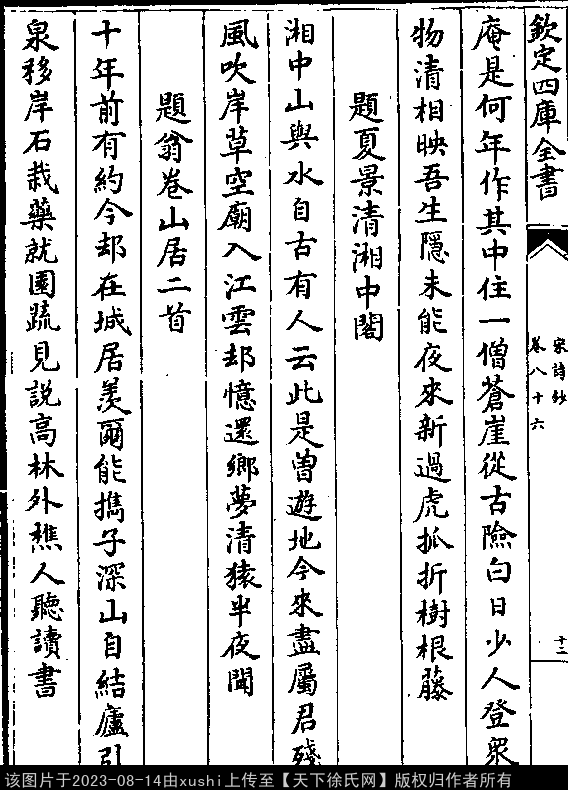 欽定四庫全書
宋詩鈔
卷八十六
十二
庵是何年作其中住一僧蒼崖從古險白日少人登衆
物清相映吾生隱未能夜來新過虎抓折樹根藤
題夏景清湘中閣
湘中山與水自古有人云此是曽遊地今來盡屬君殘
風吹岸草空廟入江雲却憶還鄉夢清猿半夜聞
題翁卷山居二首
十年前有約今却在城居羨爾能擕子深山自結廬引
泉移岸石栽藥就園蔬見説高林外樵人聽讀書
该图片于2023-08-14由xushi上传至【天下徐氏网】版权归作者所有